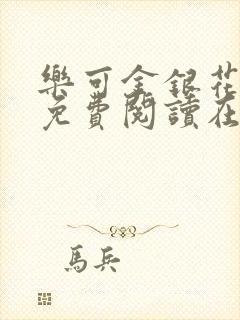 樂可金銀花
免費閱讀在
馬兵